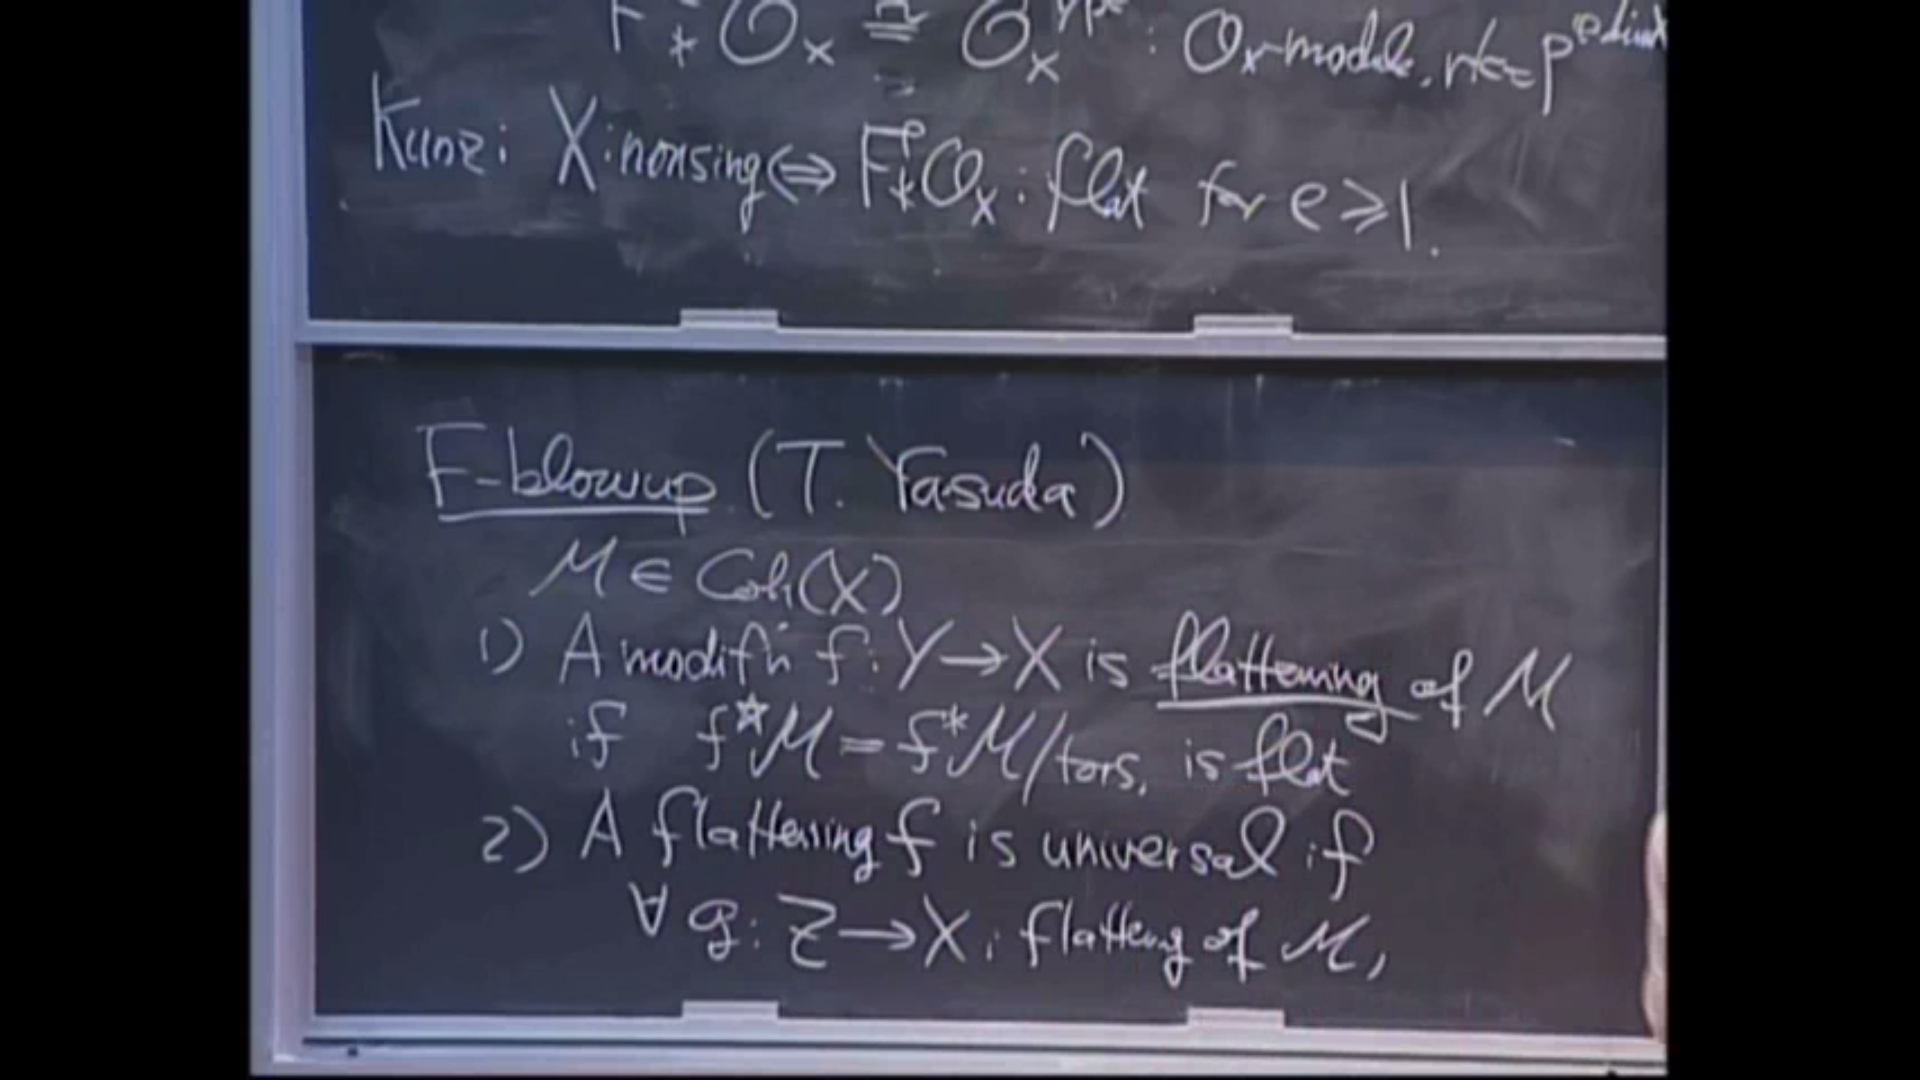 F^e_* O_X ≅ O_X^{1/p^e} : O_X-module, rk = p^e
Kunz: X: nonsing ⇔ F^e_* O_X : flat for e ≥ 1.
F-blowup (T. Yasuda)
M ∈ Coh(X)
1) A modif'n f: Y → X is flattening of M
if f^☆M = f^*M/tors. is flat
2) A flattening f is universal if
∀ g: Z → X: flatteng of M,